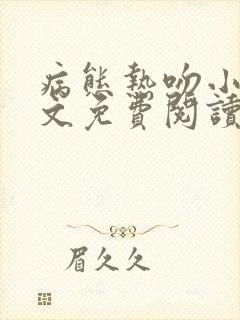 病態熱吻小
文免費閱讀
眉久久